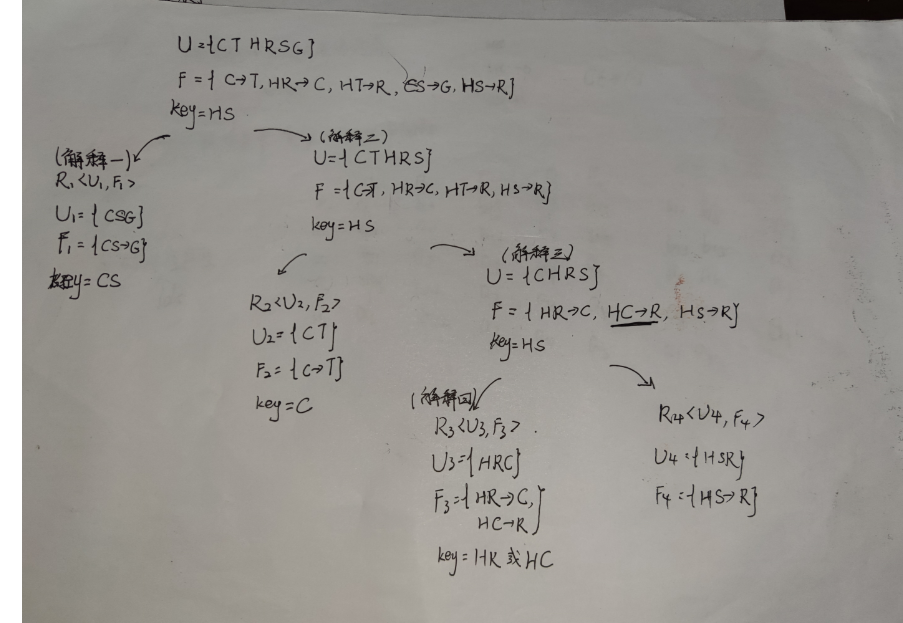 U={CTHRSG}
F={C→T, HR→C, HT→R, CS→G, HS→R}
key=HS
(解释一)
R₁<U₁,F₁>
U₁={CSG}
F₁={CS→G}
key=CS
(解释二)
U={CTHRS}
F={C→T, HR→C, HT→R, HS→R}
key=HS
R₂<U₂,F₂>
U₂={CT}
F₂={C→T}
key=C
(解释三)
U={CHRS}
F={HR→C, HC→R, HS→R}
key=HS
(解释四)
R₃<U₃,F₃>
U₃={HRC}
F₃={HR→C,
HC→R}
key=HR或HC
R₄<U₄,F₄>
U₄={HSR}
F₄={HS→R}